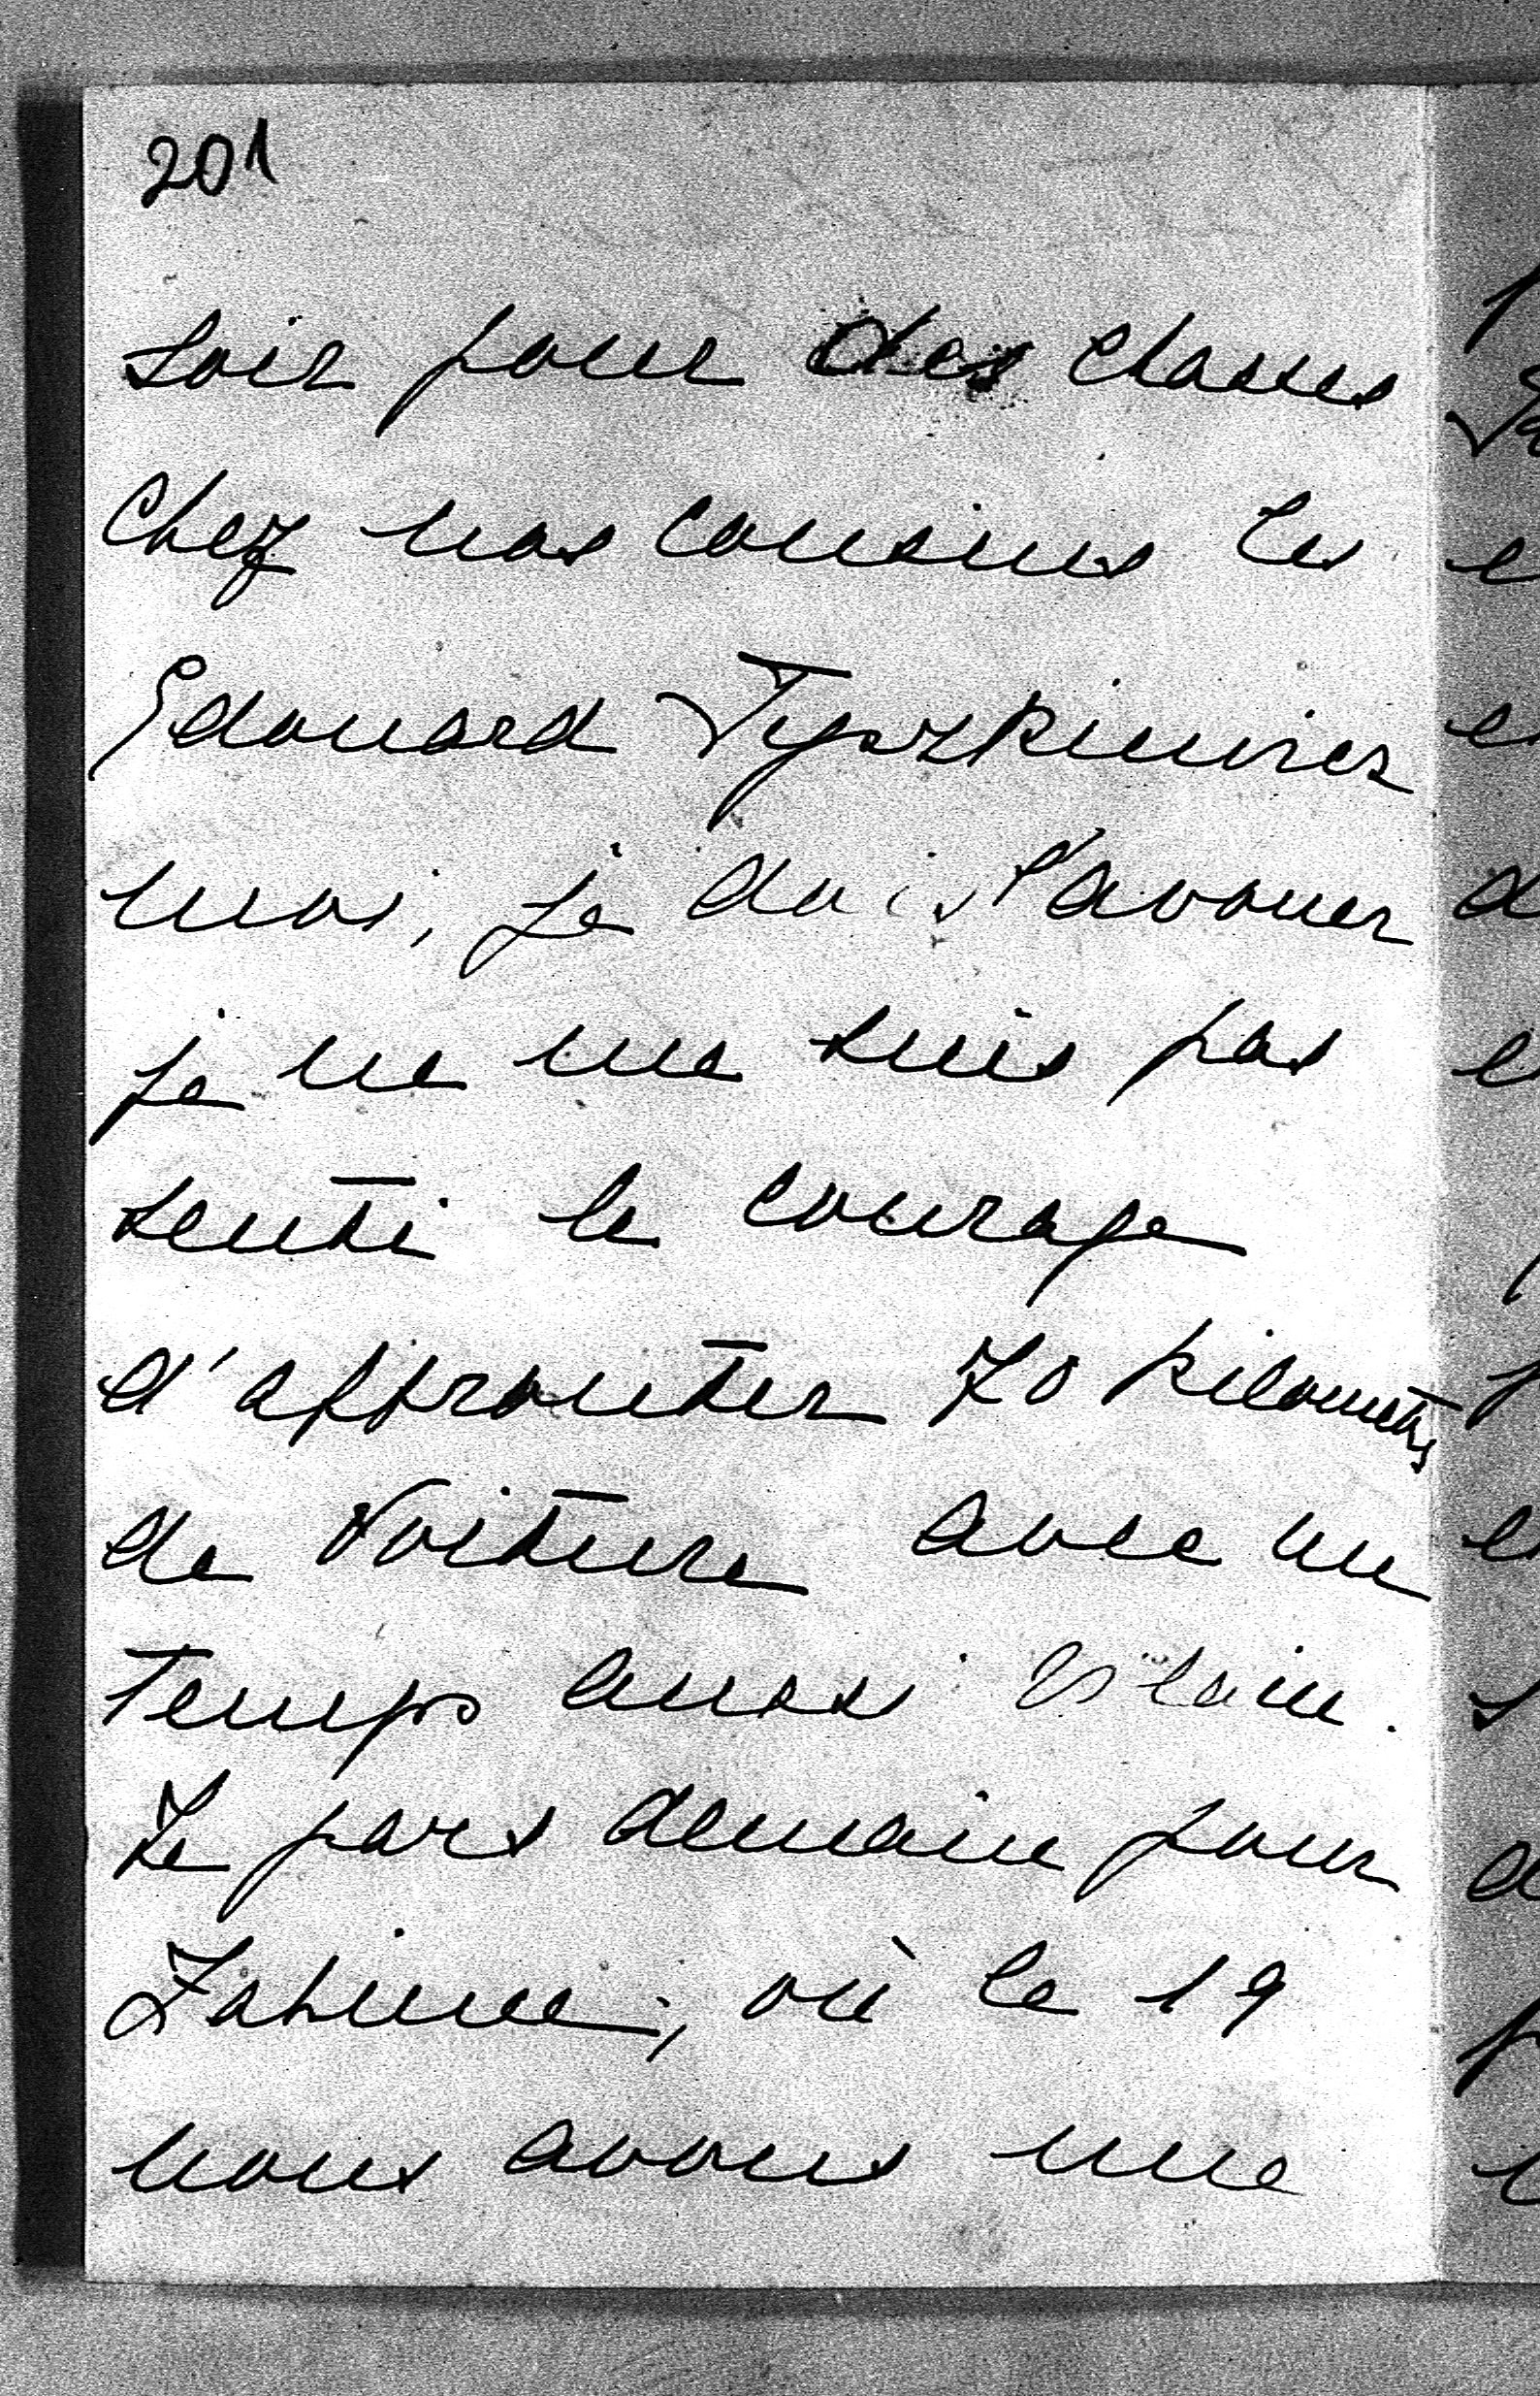 201
soir pour des chasses
chez nos cousins les
Edouard Tyszkiewicz
moi, je dois l'avouer
je ne me suis pas
senti le courage
d'affronter 70 kilomètres
de voiture avec un
temps aussi vilain.
Je pars demain pour
où le 19
nous avons une